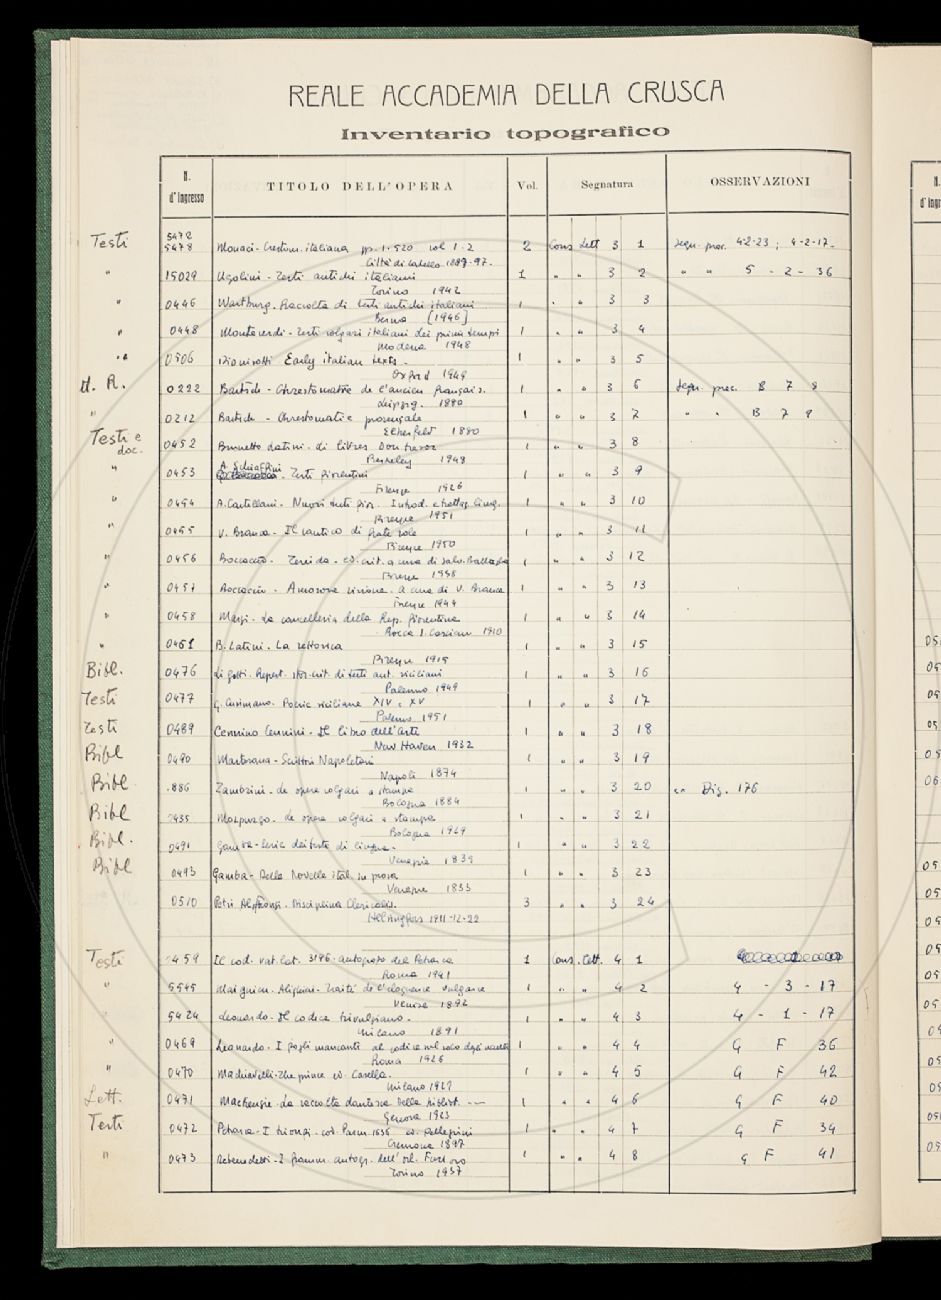 REALE ACCADEMIA DELLA CRUSCA
Inventario topografico
N. d'Ingresso TITOLO DELL'OPERA Vol. Segnatura OSSERVAZIONI
5472
Testi 5478 Monaci - Crestom. italiana pp. 1-520 vol 1-2 2 Cons Lett 3 1 segn. prec. 4-2-23 ; 4-2-17-
Città di Castello 1889-97.
" 15029 Ugolini - Testi antichi italiani 1 " " 3 2 " " 5 - 2 - 36
Torino 1942
" 0446 Wartburg - Raccolta di testi antichi italiani 1 " " 3 3
Berna [1946]
" 0448 Monteverdi - Testi volgari italiani dei primi tempi 1 " " 3 4
Modena 1948
" 0506 Dionisotti Early italian texts - 1 " " 3 5
Oxford 1949
d. R. 0222 Bartsch - Chrestomathie de l'ancien français. 1 " " 3 6 segn. prec. B 7 8
Leipzig. 1880
" 0212 Bartsch - Chrestomatie provençale 1 " " 3 7 " " B 7 9
Elberfeld 1880
Testi e doc. 0452 Brunetto Latini - Li livres dou tresor 1 " " 3 8
Berkeley 1948
" 0453 A. Schiaffini - Testi fiorentini 1 " " 3 9
Firenze 1926
" 0454 A. Castellani - Nuovi testi fior. Introd. e trattaz. ling. 1 " " 3 10
Firenze 1951
" 0455 V. Branca - Il cantico di frate sole 1 " " 3 11
Firenze 1950
" 0456 Boccaccio - Teseida - ed. crit. a cura di Salv. Battaglia 1 " " 3 12
Firenze 1938
" 0457 Boccaccio - Amorosa visione. a cura di V. Branca 1 " " 3 13
Firenze 1944
" 0458 Marzi - La cancelleria della Rep. fiorentina 1 " " 3 14
Rocca S. Casciano 1910
" 0461 B. Latini - La rettorica 1 " " 3 15
Firenze 1915
Bibl. 0476 Li Gotti. Repert. stor. crit. di testi ant. siciliani 1 " " 3 16
Palermo 1949
Testi 0477 G. Cusimano. Poesie siciliane XIV e XV 1 " " 3 17
Palermo 1951
Testi 0489 Cennino Cennini - Il libro dell'Arte 1 " " 3 18
New Haven 1932
Bibl 0490 Martorana - Scrittori Napoletani 1 " " 3 19
Napoli 1874
Bibl. 886 Zambrini - Le opere volgari a stampa 1 " " 3 20 Dis. 176
Bologna 1884
Bibl 2435 Morpurgo - Le opere volgari a stampa 1 " " 3 21
Bologna 1929
Bibl. 0491 Gamba - Serie dei testi di lingua - 1 " " 3 22
Venezia 1839
Bibl 0493 Gamba - Delle Novelle ital. in prosa 1 " " 3 23
Venezia 1833
0510 Petri Alphonsi. Disciplina Clericalis. 3 " " 3 24
Helsingfors 1911-12-22
Testi 0459 Il cod. vat. lat. 3196 - autografo del Petrarca 1 Cons. Lett. 4 1
Roma 1941
" 5545 Maignien. Alighieri - Traité de l'eloquence vulgaire 1 " " 4 2 4 - 3 - 17
Venise 1892
" 5424 Leonardo - Il codice trivulziano - 1 " " 4 3 4 - 1 - 17
Milano 1891
" 0469 Leonardo - I fogli mancanti al codice sul volo degli uccelli 1 " " 4 4 G F 36
Roma 1926
" 0470 Machiavelli - The prince ed. Casella. 1 " " 4 5 G F 42
Milano 1929
Lett. 0471 Mackenzie - La raccolta dantesca della bibliot. --- 1 " " 4 6 G F 40
Genova 1923
Testi 0472 Petrarca - I trionfi - cod. Parm. 1636 ed. Pellegrini 1 " " 4 7 G F 34
Cremona 1897
" 0473 Debenedetti - I framm. autogr. dell'Orl. Furioso 1 " " 4 8 G F 41
Torino 1937